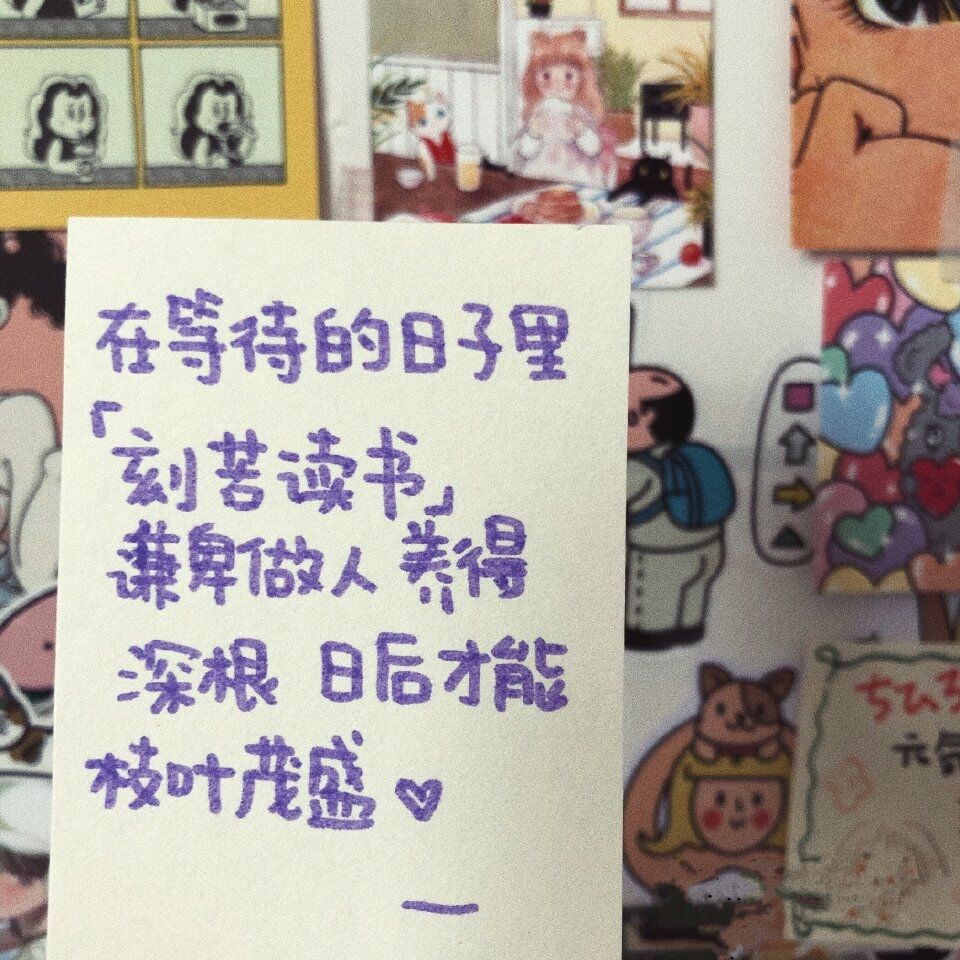 在等待的日子里
「刻苦读书」
谦卑做人 养得
深根 日后才能
枝叶茂盛♡
—
ちひろ
元気